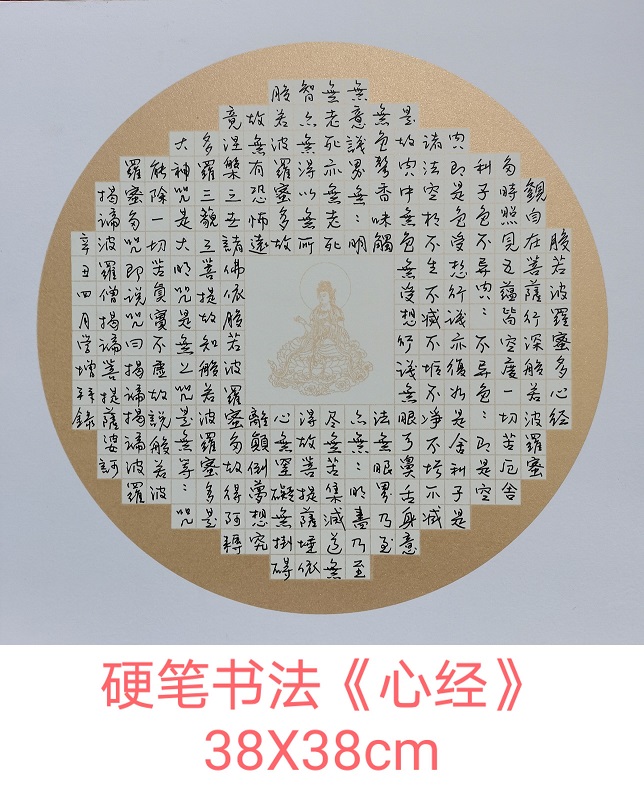 般若波羅蜜多心経
觀自在菩薩行深般若波羅蜜
多時照見五蘊皆空度一切苦厄舍
利子色不異空：不異色：即是空
空即是色受想行識亦復如是舍利子是
諸法空相不生不滅不垢不淨不增不減
是故空中無色無受想行識無眼耳鼻舌身意
無色聲香味觸法無眼界乃至
無意識界無：明亦無：明盡乃至
無老死亦無老死盡無苦集滅道無
智亦無得以無所得故菩提薩埵依
般若波羅蜜多故心無罣礙無掛碍
故無有恐怖遠離顛倒夢想究
竟涅槃三世諸佛依般若波羅蜜多故得阿耨
多羅三藐三菩提故知般若波羅蜜多是
大神咒是大明咒是無上咒是無等：咒
能除一切苦真實不虛故說般若波
羅蜜多咒即說咒曰揭諦揭諦波羅
揭諦波羅僧揭諦菩提薩婆訶
辛丑四月学增拜錄
硬笔书法《心经》
38X38cm